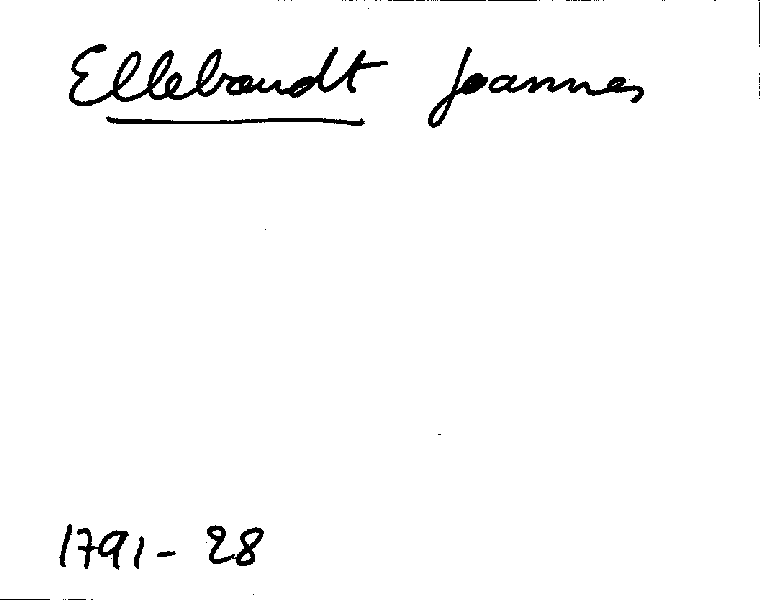 Ellebaudt Joannes
1791 - 28